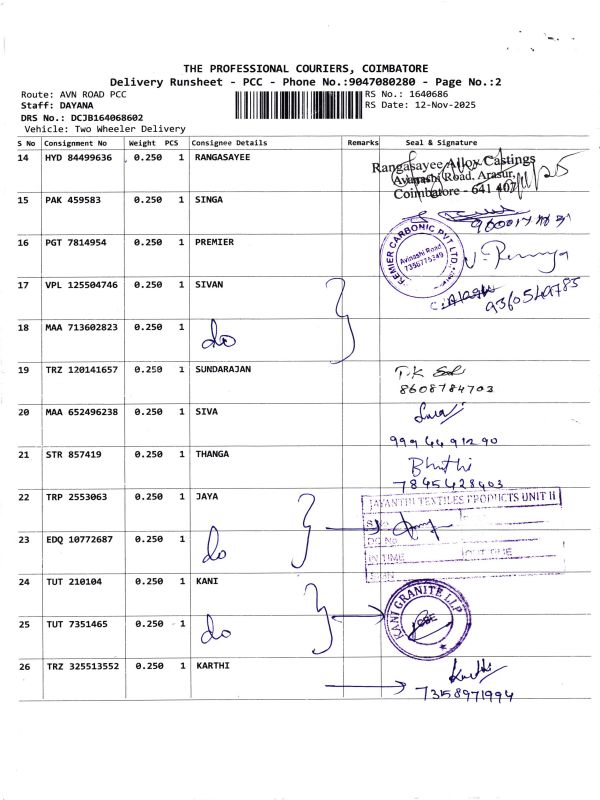 THE PROFESSIONAL COURIERS, COIMBATORE
Delivery Runsheet - PCC - Phone No.:9047080280 - Page No.:2
Route: AVN ROAD PCC RS No.: 1640686
Staff: DAYANA RS Date: 12-Nov-2025
DRS No.: DCJB164068602
Vehicle: Two Wheeler Delivery
S No Consignment No Weight PCS Consignee Details Remarks Seal & Signature
14 HYD 84499636 0.250 1 RANGASAYEE
Rangasayee Alloy Castings
Avinashi Road, Arasur,
Coimbatore - 641 407
15 PAK 459583 0.250 1 SINGA
16 PGT 7814954 0.250 1 PREMIER
PREMIER CARBONIC PVT LTD.
Avinashi Road
7358775349
17 VPL 125504746 0.250 1 SIVAN
9360549785
18 MAA 713602823 0.250 1 do
19 TRZ 120141657 0.250 1 SUNDARAJAN T.K
8608784703
20 MAA 652496238 0.250 1 SIVA
9994491290
21 STR 857419 0.250 1 THANGA
7845428403
22 TRP 2553063 0.250 1 JAYA
JAYANTHI TEXTILES PRODUCTS UNIT II
23 EDQ 10772687 0.250 1 do
IN TIME OUT TIME
24 TUT 210104 0.250 1 KANI
KANI GRANITE LLP
CBE
25 TUT 7351465 0.250 1 do
26 TRZ 325513552 0.250 1 KARTHI
7358971994